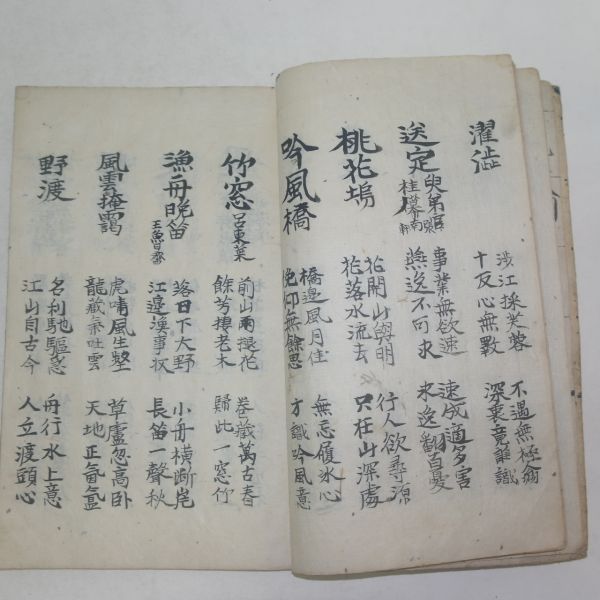 濯
涉江採芙蓉
十反心無斁
不遇無極翁
深衷竟誰識
送定叟弟
桂南軒
事業無欲速
燕逸不可求
速成適多害
求逸翻百憂
桃花塢
花開山與明
花落水流去
行人欲尋源
只在山深處
吟風橋
橋邊風月佳
俛仰無餘思
無忘履氷心
方識吟風意
竹窓
呂東萊
前山雨褪花
餘芳摶老木
卷藏萬古春
歸此一窓竹
漁舟晩笛
王魯齋
落日下大野
江邊漁事收
小舟橫斷岸
長笛一聲秋
風雲掩靄
虎嘯風生整
龍藏氣吐雲
草廬忽高臥
天地正氤氳
野渡
名利馳驅急
江山自古今
舟行水上意
人立渡頭心